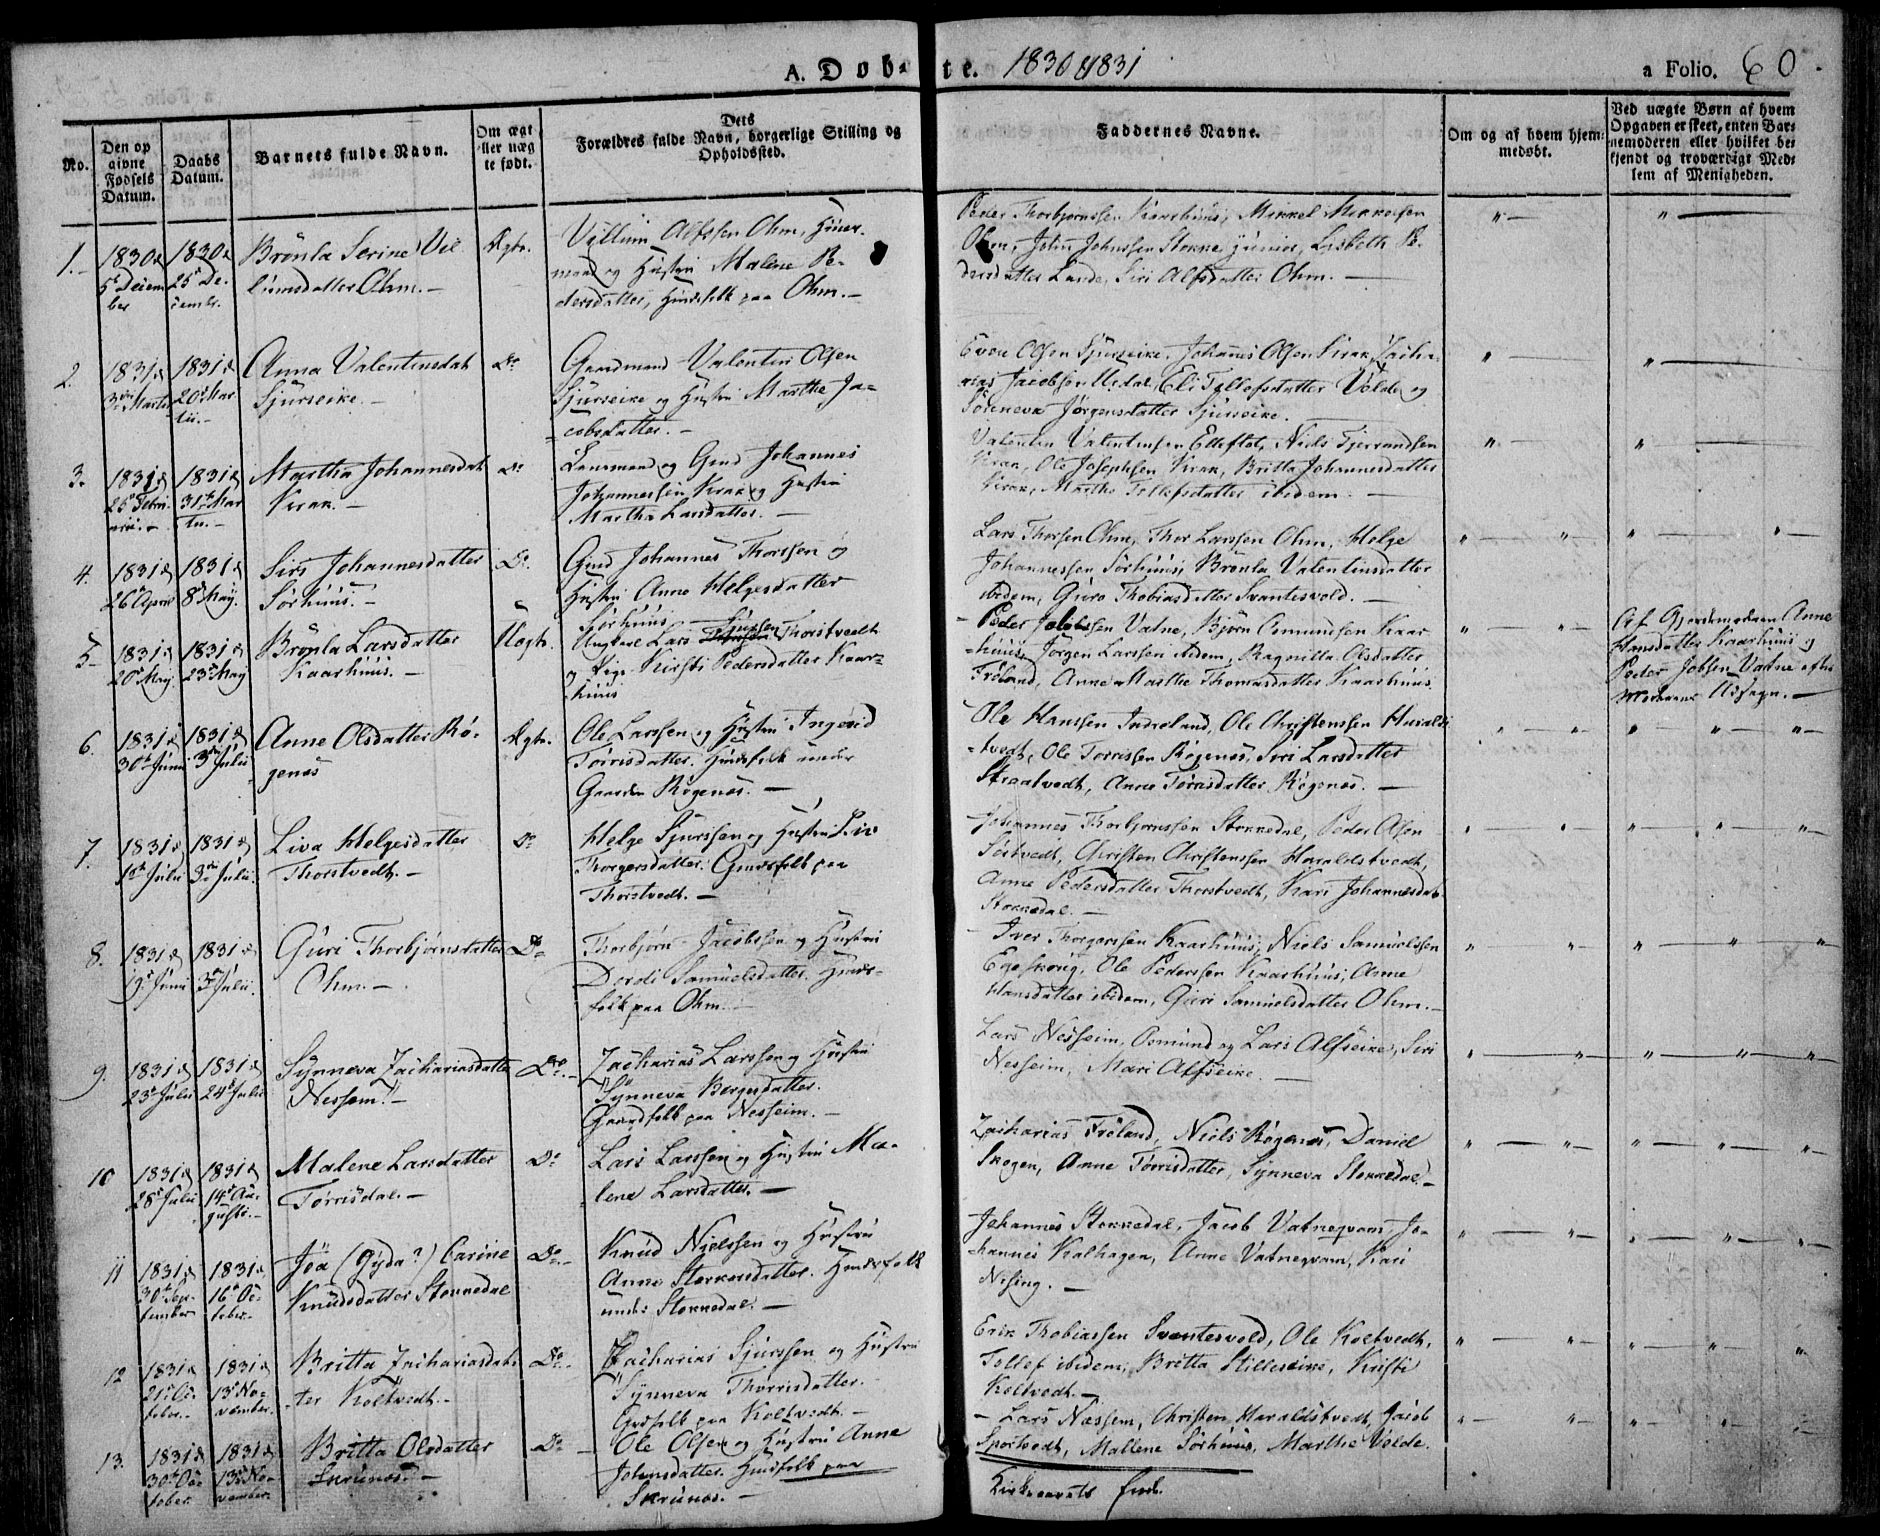 A. Døb- te. 1830 & 1831
a Folio. 60.
No.
Den op
givne
Fødsels
Datum.
Daabs
Datum.
Barnets fulde Navn.
Om ægt
eller uæg
te født.
Dets
Forældres fulde Navn, borgerlige Stilling og
Opholdssted.
Faddernes Navne.
Om og af hvem hjem-
medøbt.
Ved uægte Børn af hvem
Opgaven er skeet, enten Bar-
nemoderen eller hvilket be-
kjendt og troværdigt Med-
lem af Menigheden.
1.
1830
5 Decem
ber
1830
25 De-
cembr.
Brønla Serine Vil-
lumsdatter Ohm.
Ægte.
Villum Alfssen Ohm, Huus-
mand og Hustru Malene Pe-
dersdatter, Huusfolk paa Ohm.
Peder Thorbjørnssen Kaarhuus, Mikkel Mikkelsen
Ohm, John Johnssen Stokke junior, Lisbeth Pe-
dersdatter Lande, Siri Alfsdatter Ohm.
2.
1831
3 Martii
1831
20 Mar
tii.
Anna Valentinsdat
Sjurseike.
Do
Gaardmand Valentin Olsen
Sjurseike og Hustru Marthe Ja-
cobsdatter.
Olsen Sjurseike, Johannes Olsen Kirak, Zacha-
rias Jacobsen Uedal, Eli Tollefsdatter Velde og
Sønneva Jørgensdatter Sjurseike.
3.
1831
25 Febru
arii.
1831
31 Mar
tii.
Martha Johannesdat
Kirak.
Do
Lensmand og Gmd Johannes
Johannessen Kirak og Hustru
Martha Larsdatter.
Valentin Valentinsen Ellefløt, Niels Tjerrandsen
Kirak, Ole Josephsen Kirak, Britta Johannesdatter
Kirak, Marthe Tollefsdatter ibidem.
4.
1831
26 April
1831
8 May.
Siri Johannesdatter
Sørhuus.
Do.
Gmd Johannes Thorssen og
Hustru Anne Helgesdatter
Sørhuus
Lars Thorsen Ohm, Thor Larssen Ohm, Helge
Johannessen Sørhuus, Brønla Valentinsdatter
ibidem, Guro Thobiasdatter Svantesvold.
5
1831
20 May.
1831
23 May
Brønla Larsdatter
Kaarhuus.
Uægte.
Ungkarl Lars Sjurssen Thorstvedt
og Pige Kirsti Pedersdatter Kaar-
huus
Peder Jobssen Vatne, Bjørn Osmundsen Kaar-
huus, Jørgen Larssen ibidem, Ragnilla Olsdatter
Frøland, Anne Marthe Thomasdatter Kaarhuus.
Af Gjordemoderen Anne
Hansdatter Kaarhuus og
Peder Jobsen Vatne efter
Moderens Udsagn.
6.
1831
30 Juni
1831
3 Julii
Anne Olsdatter Rø-
genæs
Ægte.
Ole Larssen og Hustru Ingerid
Tørrisdatter. Huusfolk under
Gaarden Røgenæs.
Ole Hanssen Indreland, Ole Christenssen Haralds-
tvedt, Ole Torrissen Røgenæs, Siri Larsdatter
Straatvedt, Anne Tørrisdatter Røgenæs.
7.
1831
1 Julii
1831
3 Julii.
Liva Helgesdatter
Thorstvedt.
Do
Helge Sjurssen og Hustru Liv
Thorgersdatter. Gmdsfolk paa
Thorstvedt.
Johannes Thorbjørnssen Stokkedal, Peder Olsen
Sørtvedt, Christen Christenssen Haraldstvedt,
Anne Pedersdatter Thorstvedt, Kari Johannesdat
Stokkedal.
8.
1831
19 Juni
1831
3 Julii.
Guri Thorbjørnsdatter
Ohm.
Do
Thorbjørn Jacobssen og Hustru
Dordi Samuelsdatter, Huus-
folk paa Ohm.
Iver Thorgerssen Kaarhuus, Niels Samuelssen
Egeskoug, Ole Pederssen Kaarhuus, Anne
Hansdatter ibidem, Guri Samuelsdatter Ohm.
9.
1831
23 Julii
1831
24 Julii
Synneva Zachariasdatter
Nessem.
Do.
Zacharias Larssen og Hustru
Synneva Bergesdatter.
Gaardfolk paa Nesseim.
Lars Nesseim, Osmund og Lars Alfseike, Siri
Nesseim, Mari Alfseike.
10
1831
28 Julii
1831
14 Au-
gusti.
Malene Larsdatter
Tørrisdal.
Do
Lars Larssen og Hustru Ma-
lene Larsdatter.
Zacharias Frøland, Niels Røgenæs, Daniel
Skogen, Anne Tørrisdatter, Synneva Stokkedal.
11
1831
30 Sep-
tember
1831
16 Oc-
tober.
Jøa (Gyda?) Carine
Knudsdatter Stokkedal
Do.
Knud Nielssen og Hustru
Anne Størkersdatter. Huusfolk
under Stokkedal.
Johannes Stokkedal, Jacob Vatneqvam, Jo-
hannes Kalhagen, Anne Vatneqvam, Kari
Nising.
12
1831
21 Oc-
tober.
1831
13 No-
vember.
Britta Zachariasdat-
ter Koltvedt.
Do.
Zacharias Sjurssen og Hustru
Synneva Thorrisdatter.
Gmdfolk paa Koltvedt.
Erik Thobiassen Svantesvold, Ole Koltvedt,
Tollef ibidem, Britta Stilleseike, Kristi
Koltvedt.
13.
1831
30 Oc-
tober.
1831
13 No-
vember.
Britta Olsdatter
Skrunæs.
Do
Ole Olsen og Hustru Anne
Johnsdatter. Huusfolk paa
Skrunæs.
Lars Næssem, Christen Haraldstvedt, Jacob
Sportvedt, Mallene Sørhuus, Marthe Velde.
Kirkeaarets Ende.